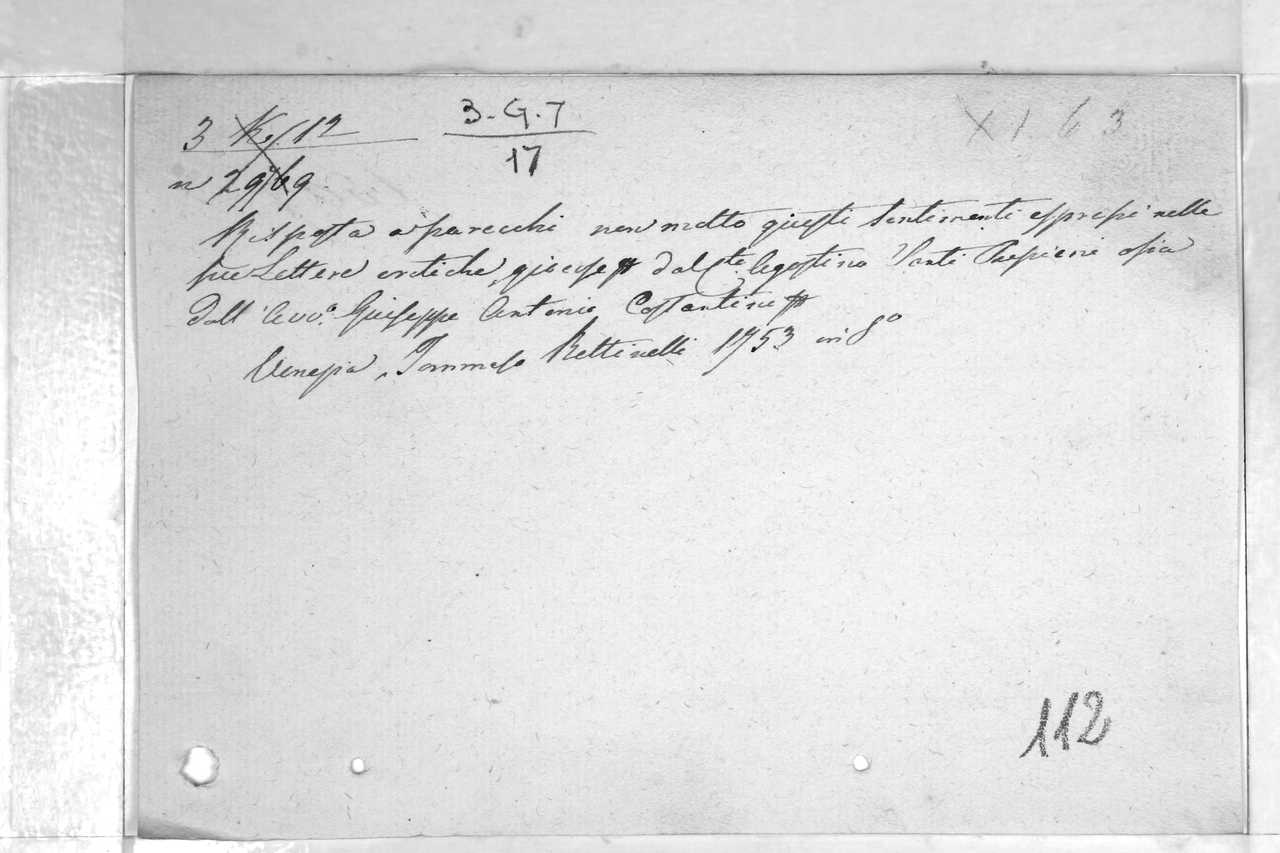 3 K./12
3-G.7
17
X 1 6 3
n 29169
Risposta a parecchi non molto giusti sentimenti espressi nelle
sue Lettere critiche, giocose dal Cte. Agostino Santi Pupieni ossia
dall' Avvo. Giuseppe Antonio Costantini
Venezia, Tommaso Bettinelli 1753 in 8o
112